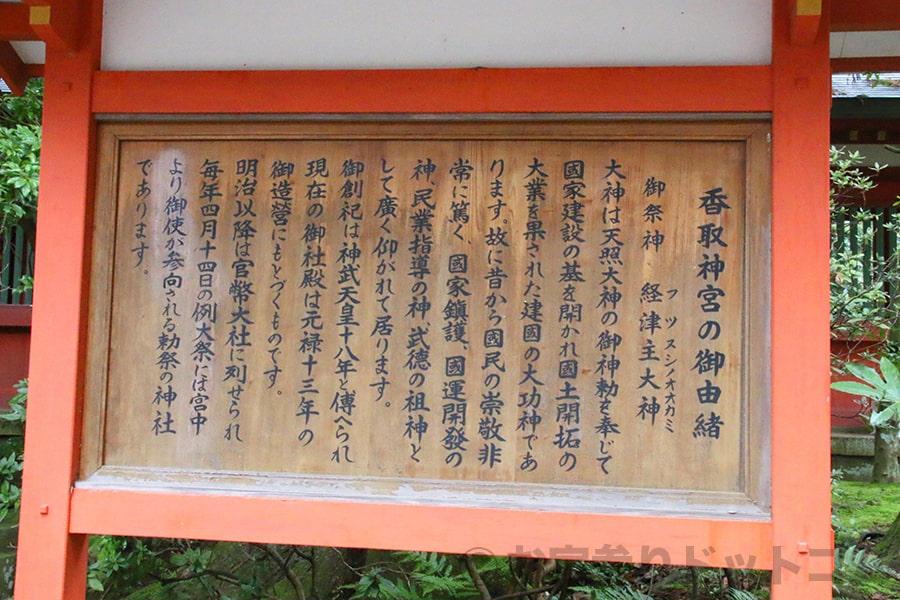 香取神宮の御由緒
御祭神 経津主大神
フツヌシノオオカミ
大神は天照大神の御神勅を奉じて
國家建設の基を開かれ國土開拓の
大業を果された建國の大功神であ
ります。故に昔から國民の崇敬非
常に篤く、國家鎭護、國運開發の
神、民業指導の神、武徳の祖神と
して廣く仰がれて居ります。
御創祀は神武天皇十八年と傳へられ
現在の御社殿は元禄十三年の
御造營にもとづくものです。
明治以降は官幣大社に列せられ
毎年四月十四日の例大祭には宮中
より御使が参向される勅祭の神社
であります。
© お宮参りドットコ